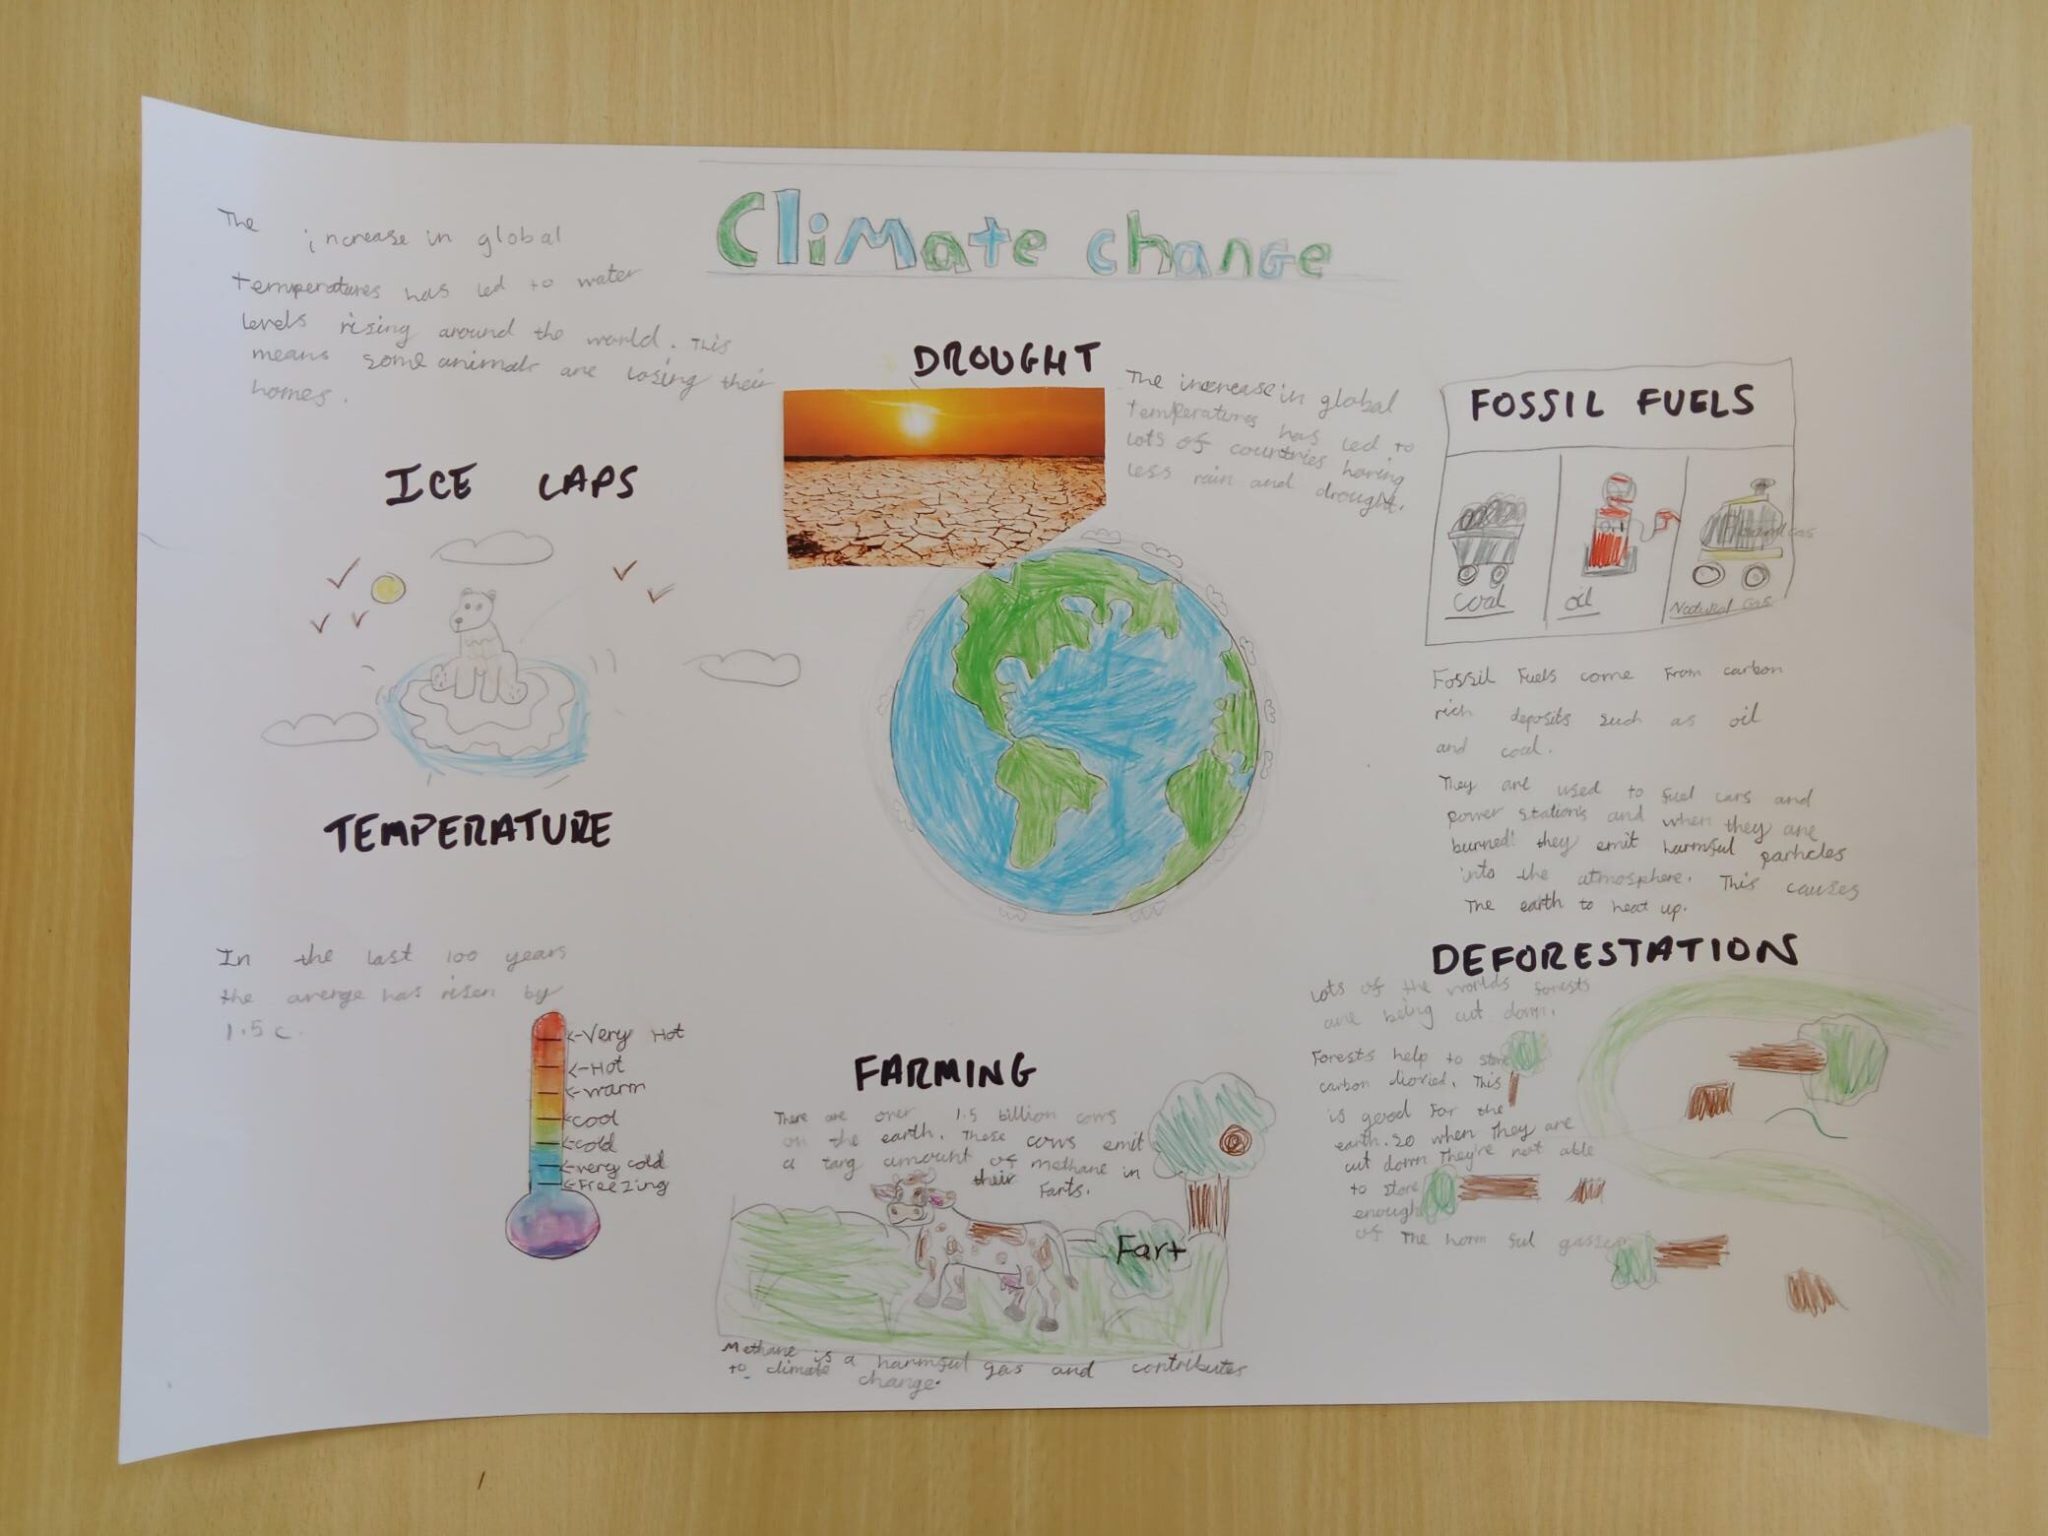 Climate change
The increase in global
temperatures has led to water
levels rising around the world. This
means some animals are losing their
homes.
ICE CAPS
TEMPERATURE
In the last 100 years
the averge has risen by
1.5 c.
<-Very Hot
<-Hot
<-warm
<-cool
<-cold
<-very cold
<-Freezing
DROUGHT
The increase in global
temperatures has led to
lots of countries having
less rain and drought.
FARMING
There are over 1.5 billion cows
on the earth. These cows emit
a targ amount of methane in
their Farts.
Fart
Methane is a harmful gas and contributes
to climate change.
FOSSIL FUELS
coal
oil
Natural Gas
Fossil Fuels come From carbon
rich deposits such as oil
and coal.
They are used to fuel cars and
power stations and when they are
burned they emit harmful particles
into the atmosphere. This causes
The earth to heat up.
DEFORESTATION
Lots of the worlds forests
are being cut down.
Forests help to store
carbon dioxied. This
is good For the
earth. So when They are
cut down They're not able
to store
enough
of The harm ful gasses